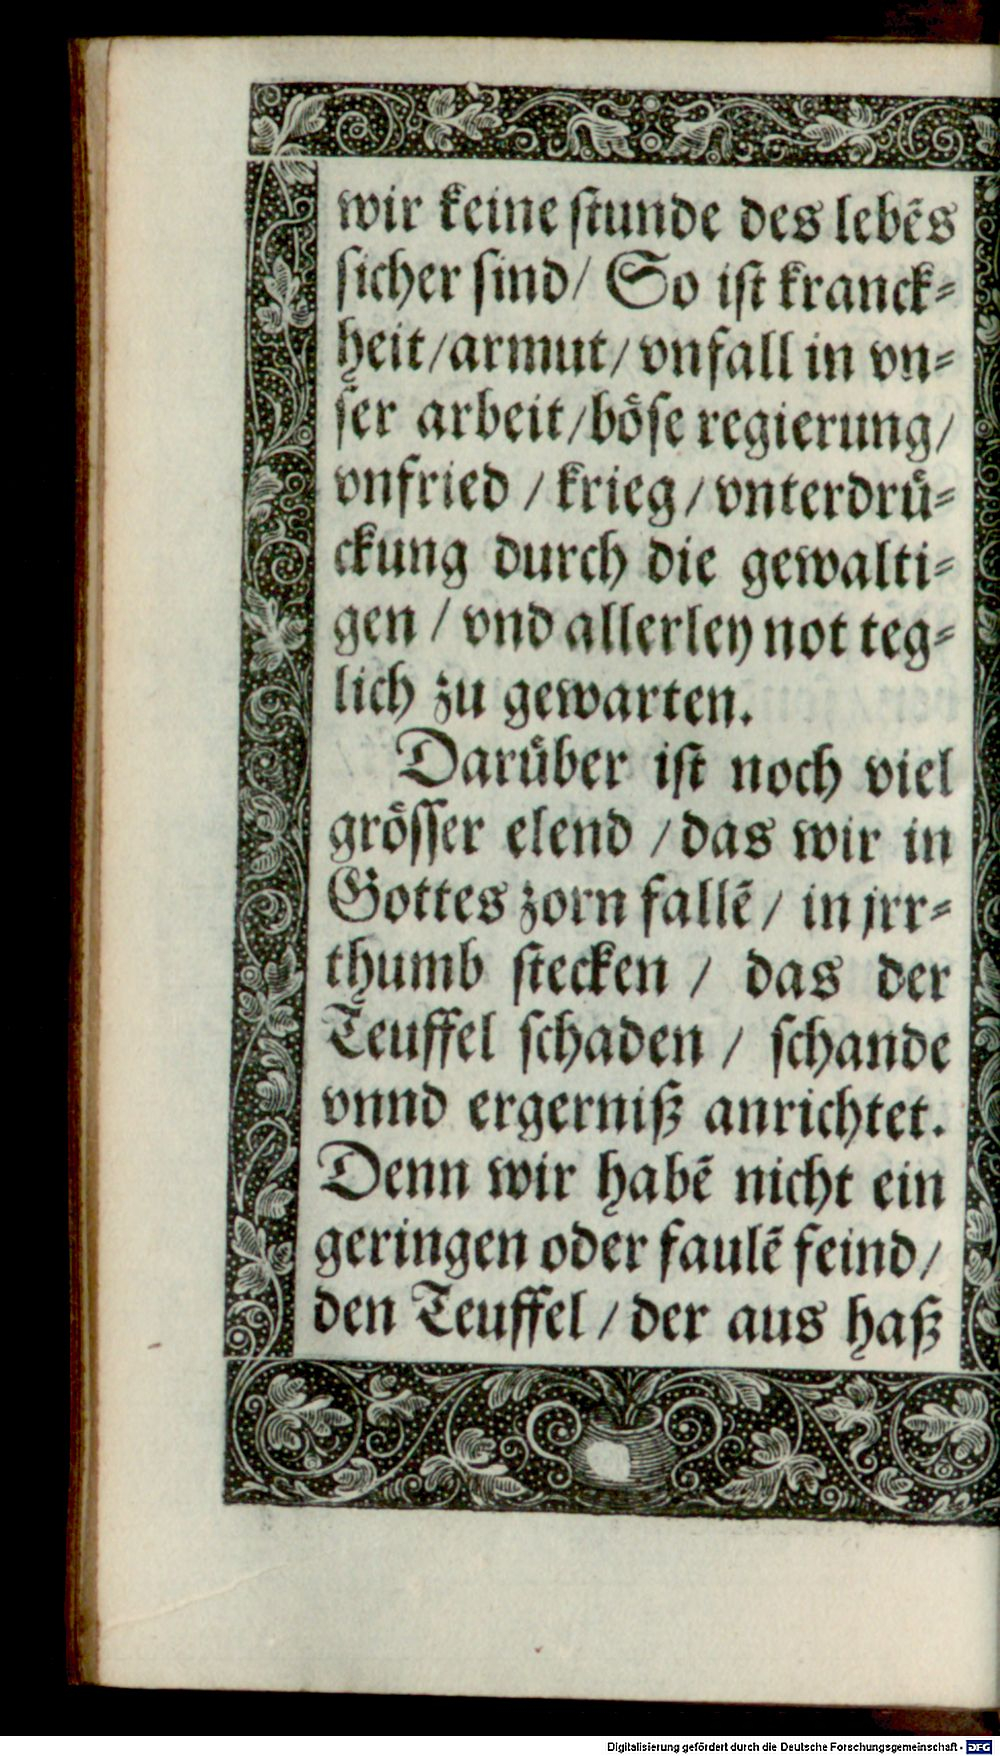 wir keine ſtunde des lebẽs
ſicher ſind/ So iſt kranck⸗
heit/armut/ vnfall in vn⸗
ſer arbeit/böſe regierung/
vnfried / krieg/ vnterdrü⸗
ckung durch die gewalti⸗
gen / vnd allerley not teg⸗
lich zu gewarten.
Darüber iſt noch viel
gröſſer elend / das wir in
Gottes zorn fallẽ/ in jrr⸗
thumb ſtecken / das der
Teuffel ſchaden / ſchande
vnnd ergerniß anrichtet.
Denn wir habẽ nicht ein
geringen oder faulẽ feind/
den Teuffel / der aus haß
Digitalisierung gefördert durch die Deutsche Forschungsgemeinschaft - DFG